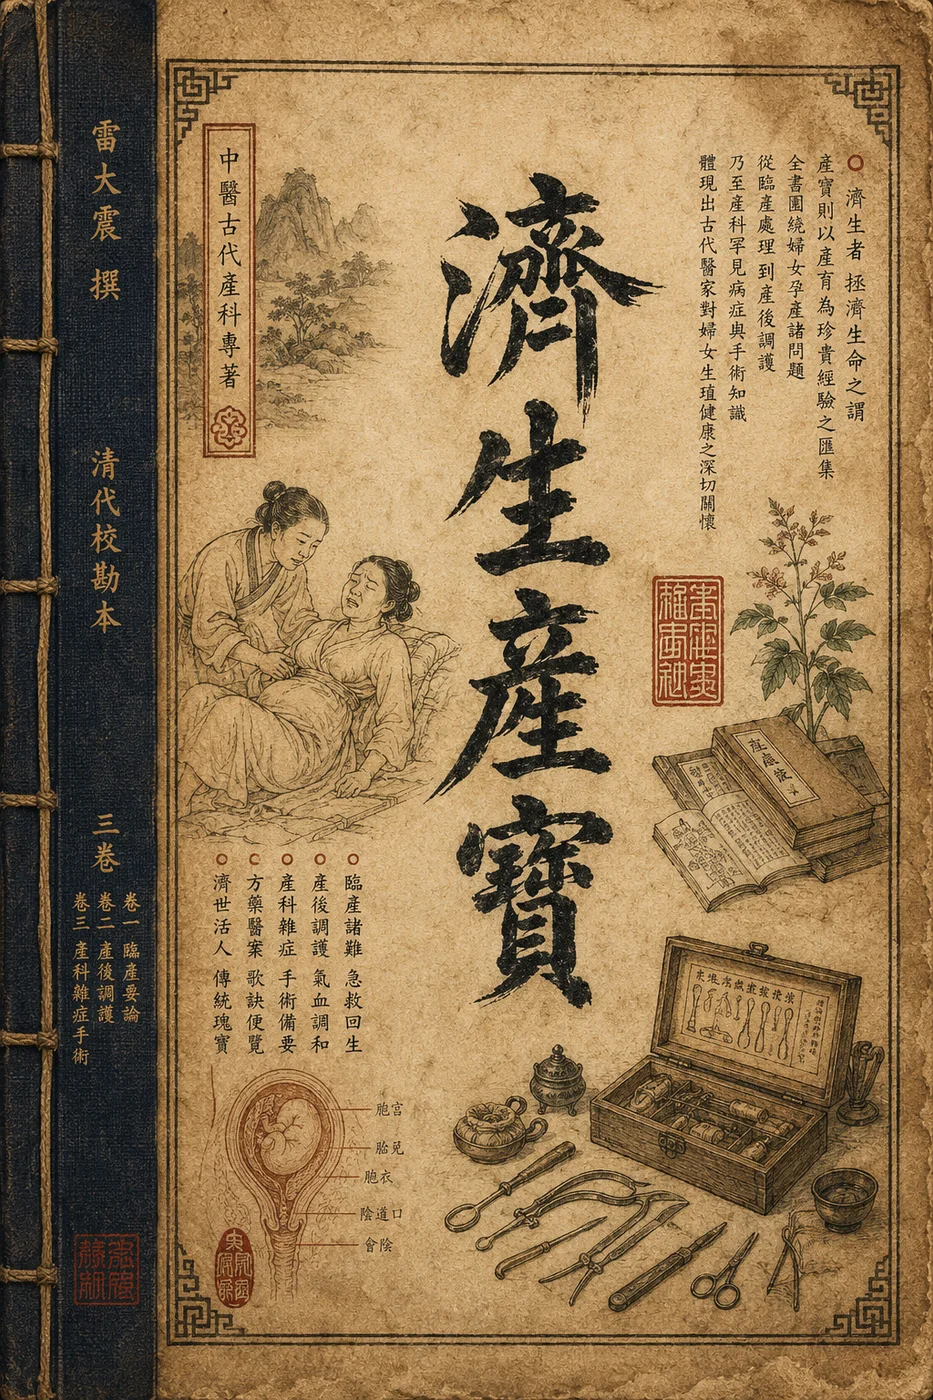 濟生產寶
中醫古代產科專著
濟生者 拯濟生命之謂
產寶則以產育為珍貴經驗之匯集
全書圍繞婦女孕產諸問題
從臨產處理到產後調護
乃至產科罕見病症與手術知識
體現出古代醫家對婦女生殖健康之深切關懷
臨產諸難 急救回生
產後調護 氣血調和
產科雜症 手術備要
方藥醫案 歌訣便覽
濟世活人 傳統瑰寶
胞宮
胎兒
胞衣
陰道口
會陰
雷大震 撰
清代校勘本
三卷
卷一 臨產要論
卷二 產後調護
卷三 產科雜症手術